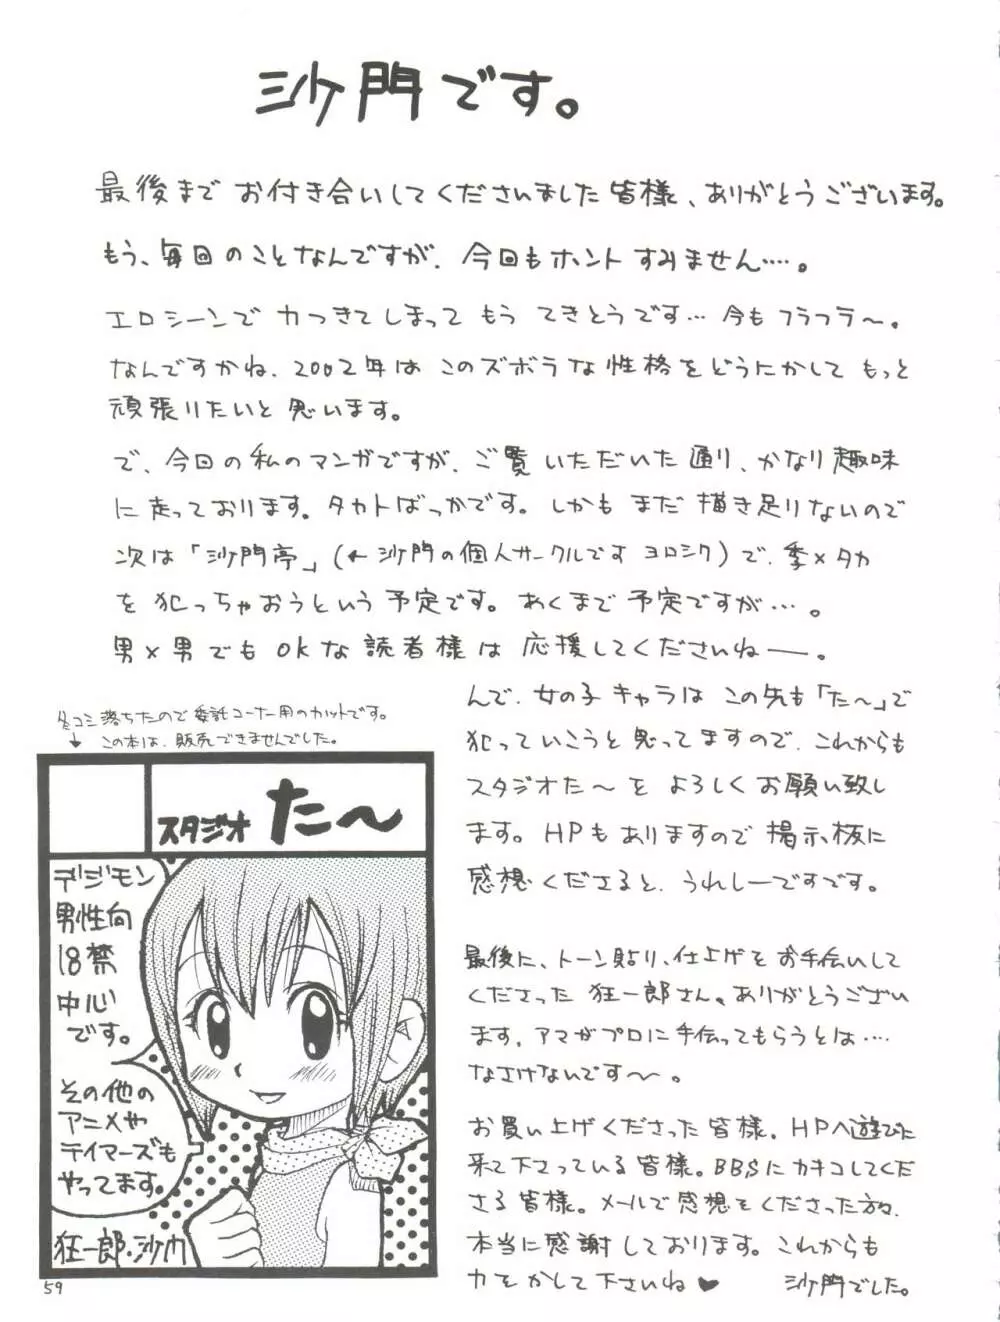 沙門です。
最後まで お付き合いしてくださいました皆様、ありがとうございます。
もう、毎回のことなんですが、今回もホントすみません……。
エロシーンで力つきてしまってもう てきとうです… 今もフラフラ～。
なんですかね、2002年はこのズボラな性格をどうにかして もっと
頑張りたいと思います。
で、今回の私のマンガですが、ご覧いただいた通り、かなり趣味
に走っております。タカトばっかです。しかも まだ描き足りないので
次は「沙門亭」（←沙門の個人サークルです ヨロシク）で、季×タカ
を犯っちゃおうという予定です。あくまで予定ですが…。
男×男でも OKな読者様は 応援してくださいね――。
んで、女の子キャラは この先も「た～」で
犯っていこうと思ってますので、これからも
スタジオた～を よろしくお願い致し
ます。HPもありますので 掲示板に
感想くださると、うれしーですです。
最後に、トーン貼り、仕上げをお手伝いして
くださった 狂一郎さん。ありがとうござい
ます。アマがプロに手伝ってもらうとは……
なさけないです～。
お買い上げくださった皆様。HPへ遊びに
来て下さっている皆様。BBSにカキコしてくだ
さる皆様。メールで感想をくださった方々、
本当に感謝しております。これからも
力をかして下さいね♥ 沙門でした。
冬コミ落ちたので委託コーナー用のカットです。
↓ この本は、販売できませんでした。
スタジオ た～
デジモン
男性向
18禁
中心
です。
その他の
アニメや
テイマーズも
やってます。
狂一郎・沙門
59